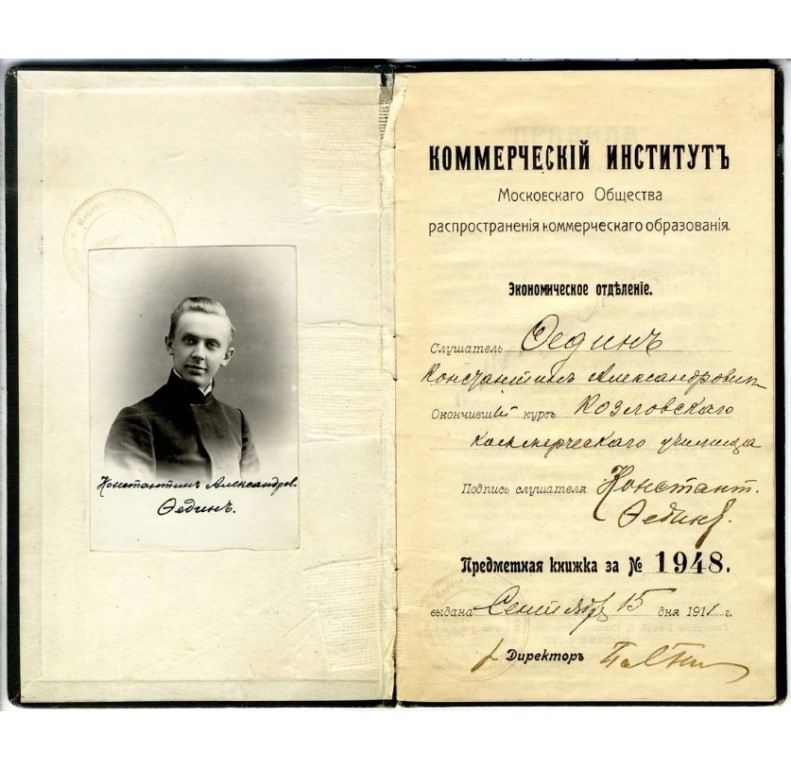 Константинъ Александров.
Ѳединъ.
КОММЕРЧЕСКІЙ ИНСТИТУТЪ
Московскаго Общества
распространенія коммерческаго образованія.
Экономическое отдѣленіе.
Слушатель Ѳединъ
Константинъ Александровичъ
Окончившій курсъ Козловскаго
коммерческаго училища
Подпись слушателя Констант.
Ѳединъ.
Предметная книжка за № 1948.
выдана Сентября 15 дня 1911 г.
Директоръ